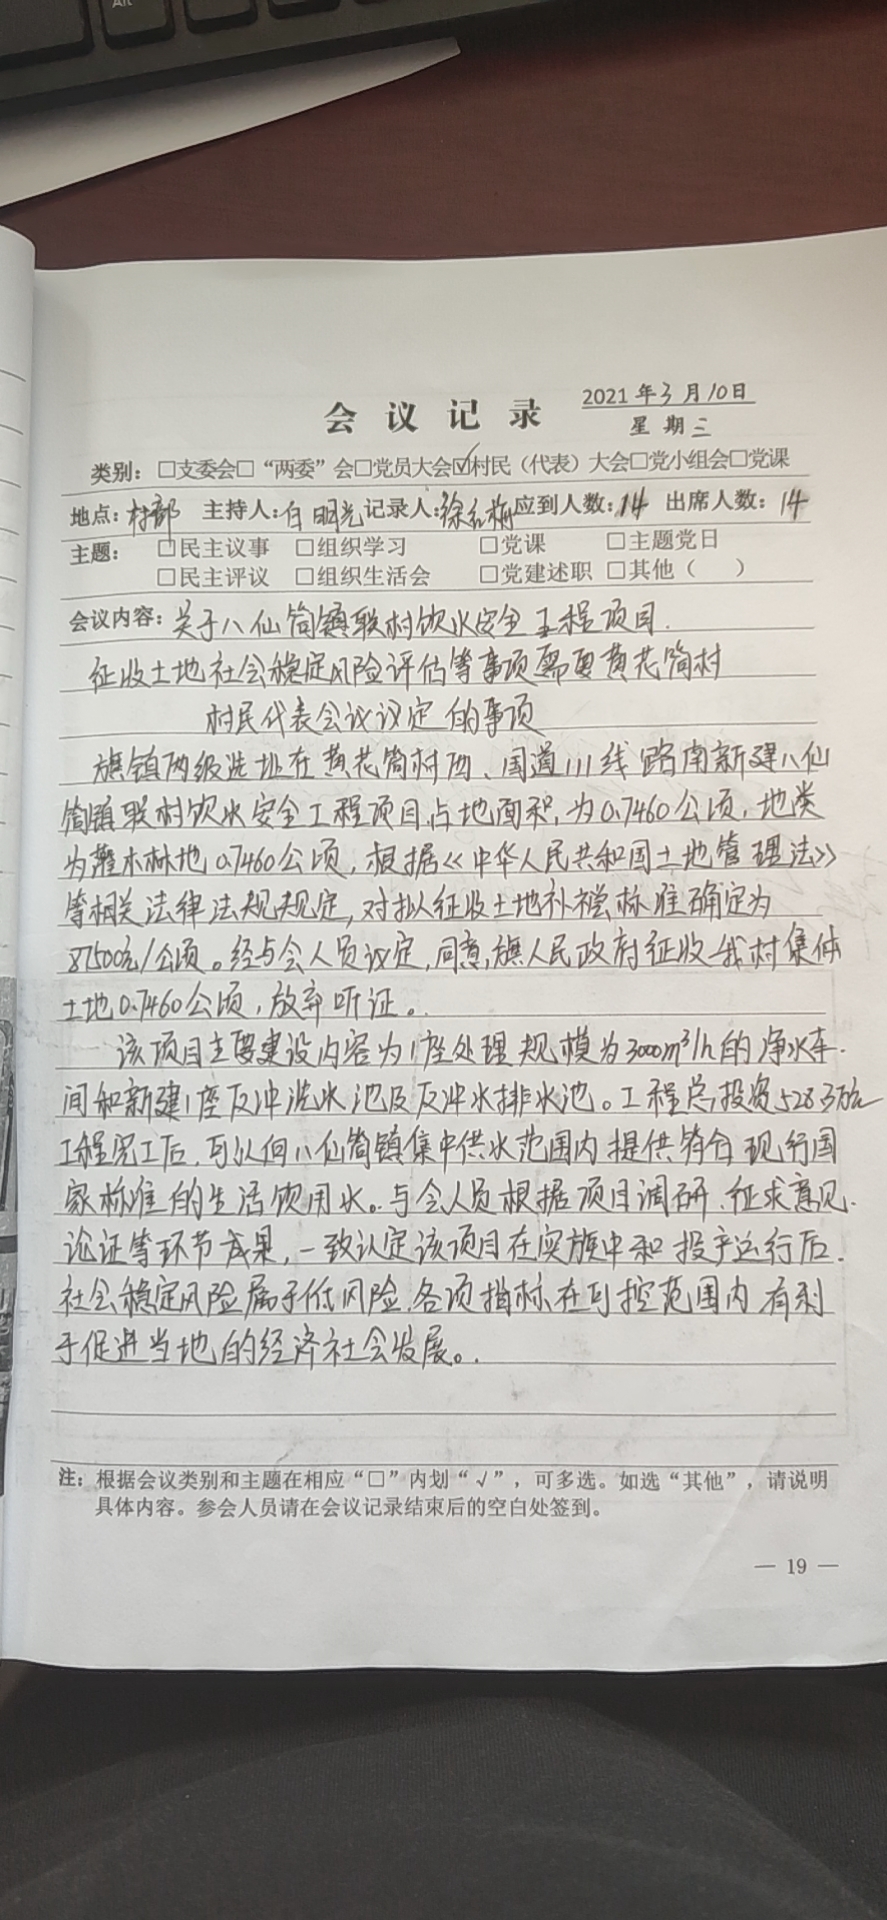 Alt
会议记录
2021年3月10日
星期三
类别：□支委会□“两委”会□党员大会☑村民（代表）大会□党小组会□党课
地点：村部 主持人：白明光 记录人：徐红梅 应到人数：14 出席人数：14
主题：□民主议事 □组织学习 □党课 □主题党日
□民主评议 □组织生活会 □党建述职 □其他（ ）
会议内容：关于八仙筒镇联村饮水安全工程项目.
征收土地社会稳定风险评估等事项需要黄花筒村
村民代表会议议定的事项
旗镇两级选址在黄花筒村西、国道111线路南新建八仙
筒镇联村饮水安全工程项目,占地面积,为0.7460公顷,地类
为灌木林地0.7460公顷,根据《中华人民共和国土地管理法》
等相关法律法规规定,对拟征收土地补偿标准确定为
87500元/公顷。经与会人员议定,同意,旗人民政府征收我村集体
土地0.7460公顷,放弃听证。
该项目主要建设内容为1座处理规模为3000m³/h的净水车
间和新建1座反冲洗水池及反冲水排水池。工程总投资5283万元
工程完工后,可以向八仙筒镇集中供水范围内提供符合现行国
家标准的生活饮用水。与会人员根据项目调研、征求意见、
论证等环节成果,一致认定该项目在实施中和投产运行后.
社会稳定风险属于低风险,各项指标在可控范围内有利
于促进当地的经济社会发展。
注：根据会议类别和主题在相应“□”内划“√”，可多选。如选“其他”，请说明
具体内容。参会人员请在会议记录结束后的空白处签到。
— 19 —